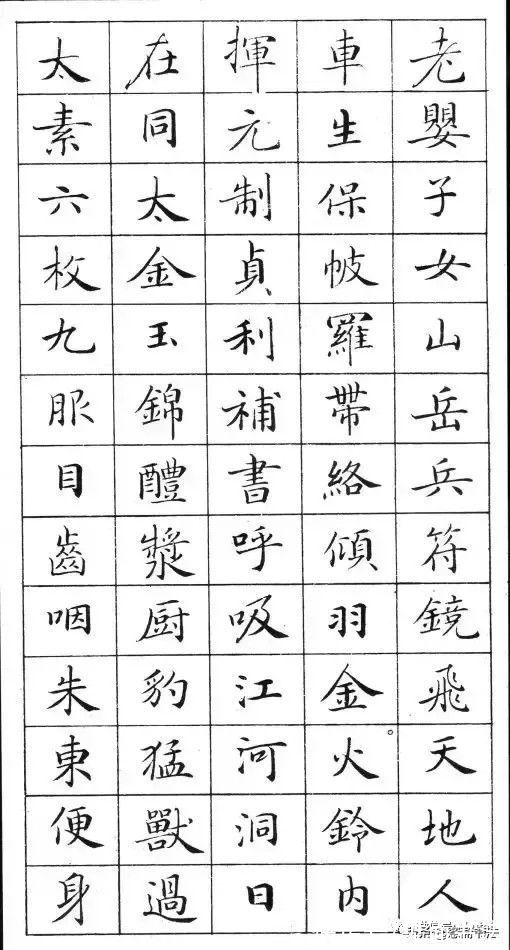 老嬰子女山岳兵符鏡飛天地人
車生保帔羅帶絡傾羽金火鈴內
揮元制貞利補書呼吸江河洞日
在同太金玉錦醴漿厨豹猛獸過
太素六枚九服目齒咽朱東便身